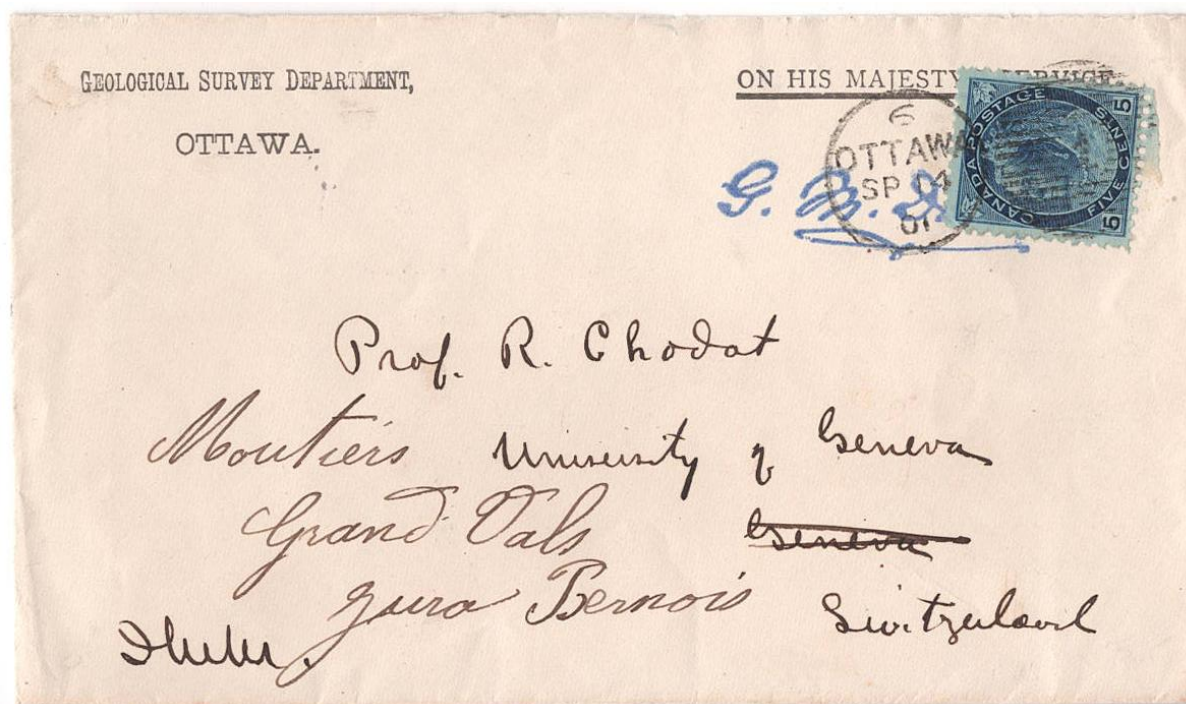 GEOLOGICAL SURVEY DEPARTMENT,
OTTAWA.
ON HIS MAJESTY
6
OTTAWA
SP 14
01
CANADA POSTAGE
FIVE CENTS
5
5
G. M.
Prof. R. Chodat
Moutiers
University of Geneva
Grand Vals
Geneva
Jura Bernois
Switzerland